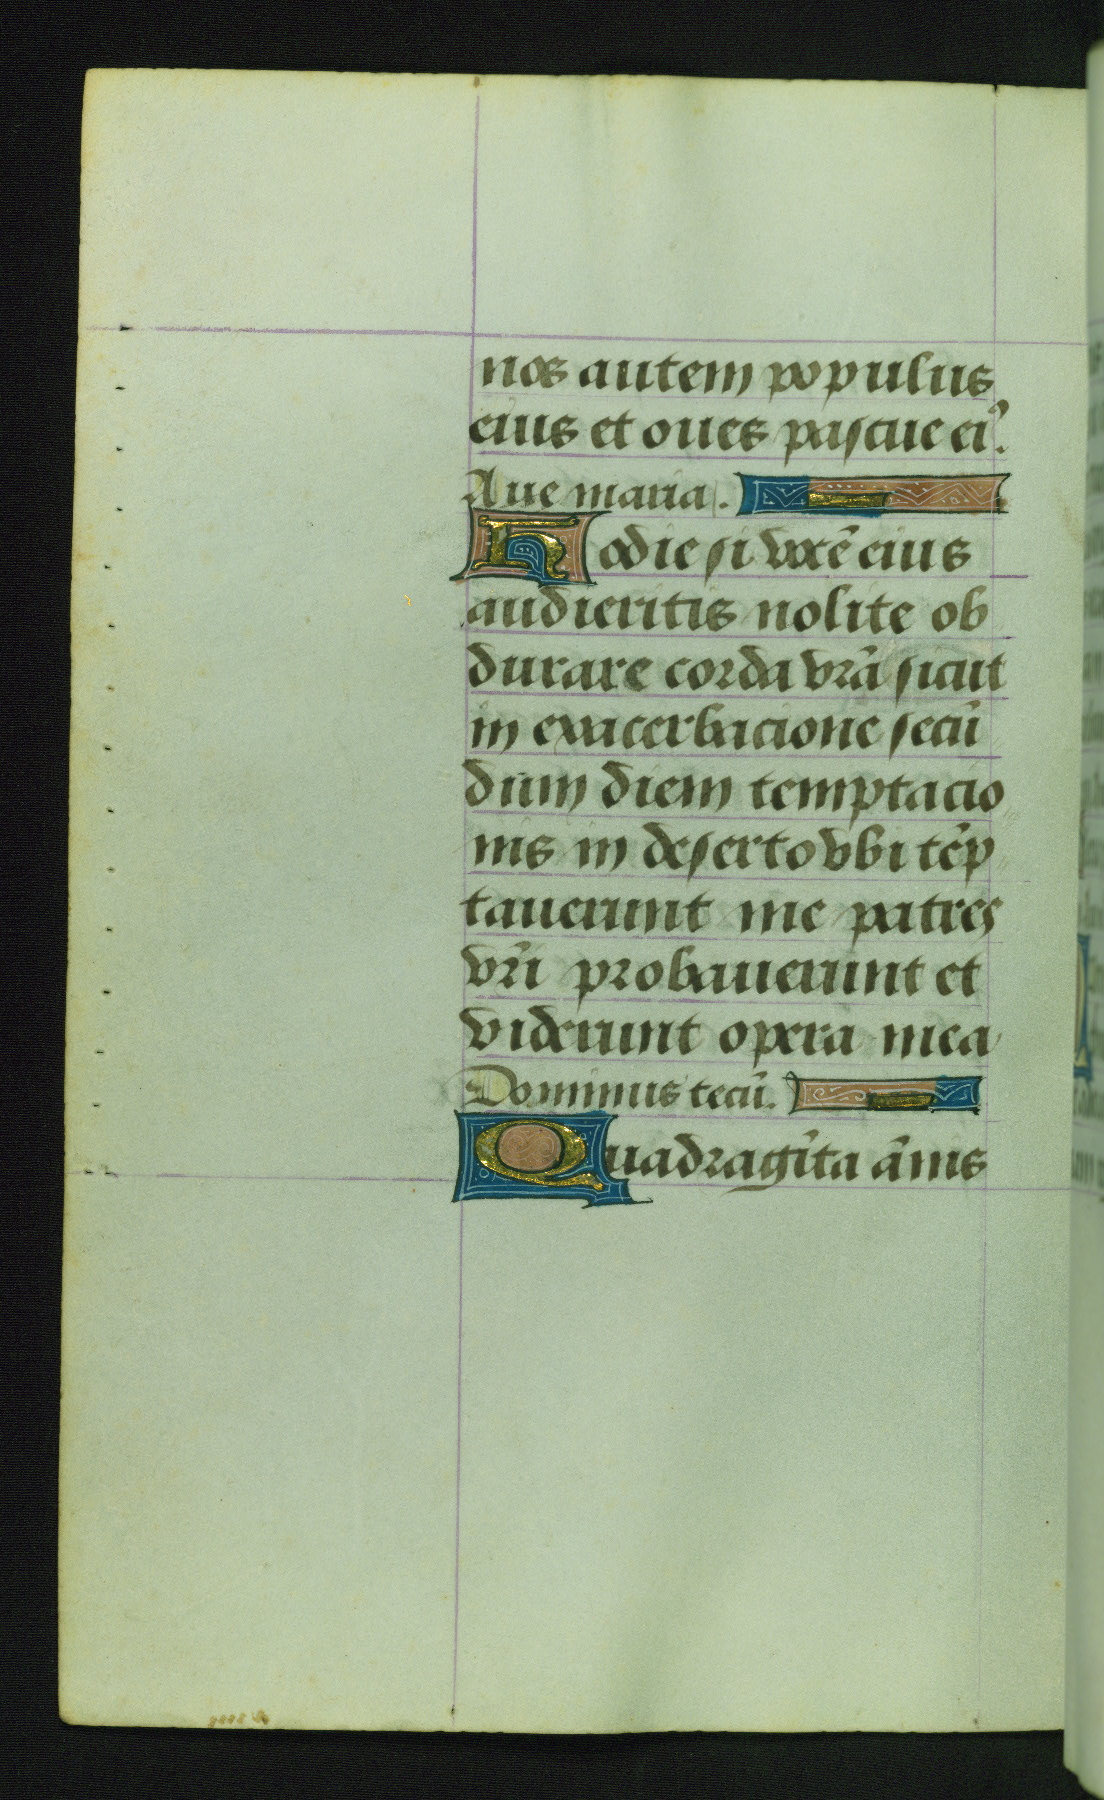 nos autem populus
eius et oues pascue ei⁹.
Aue maria.
Hodie si vocē eius
audieritis nolite ob
durare corda vr̄a sicut
in exacerbacione secū
dum diem temptacio
nis in deserto vbi tēp
tauerunt me patres
vr̄i probauerunt et
viderunt opera mea
Dominus tecū.
Quadragīta ānis